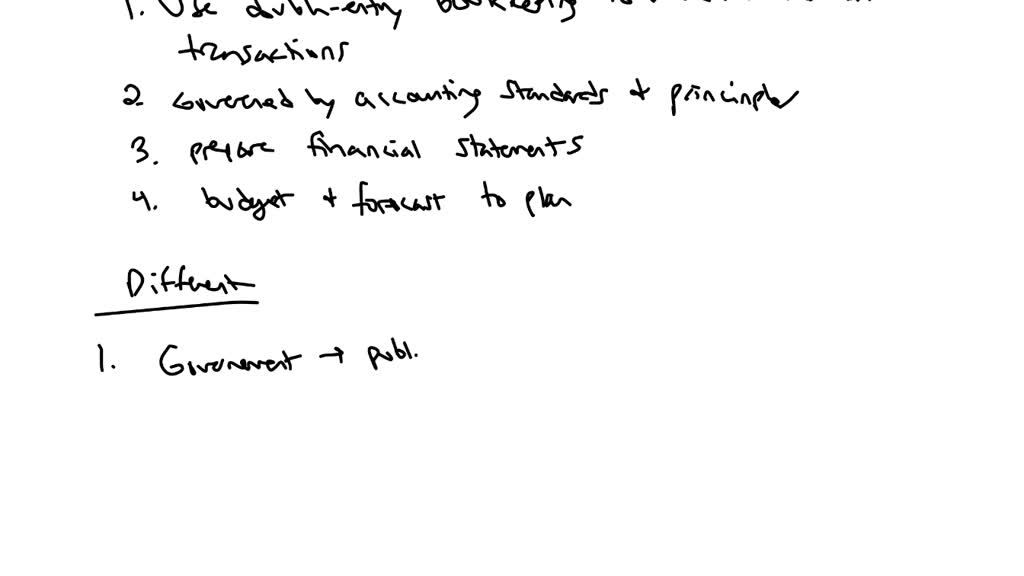 1. Use double-entry bookkeeping
transactions
2. Governed by accounting standards + principles
3. prepare financial statements
4. budget + forecast to plan
Different
1. Government → publ.